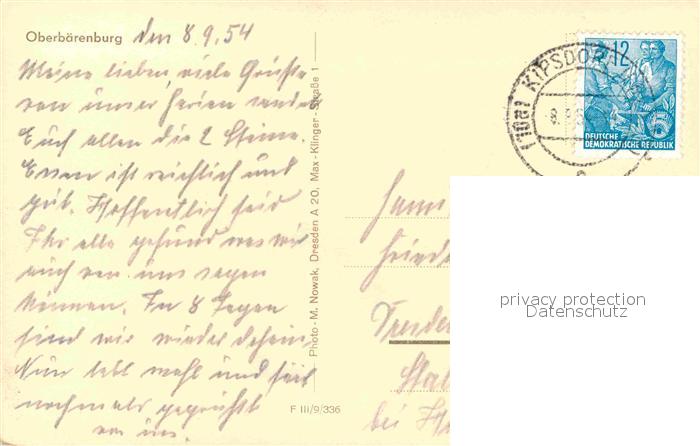 Oberbärenburg den 8.9.54
Meine lieben, viele Grüße
von unser Ferien sendet
Euch allen die 2 Steine.
Essen ist reichlich und
gut. Hoffentlich seid
Ihr alle gesund was wir
auch von uns sagen
können. In 8 Tagen
sind wir wieder daheim
Nun lebt wohl und seit
nochmals gegrüßt
von uns.
Photo-M. Nowak, Dresden A 20, Max-Klinger-Straße 1
F III/9/336
KIPSDORF
12
DEUTSCHE
DEMOKRATISCHE REPUBLIK
privacy protection
Datenschutz
bei